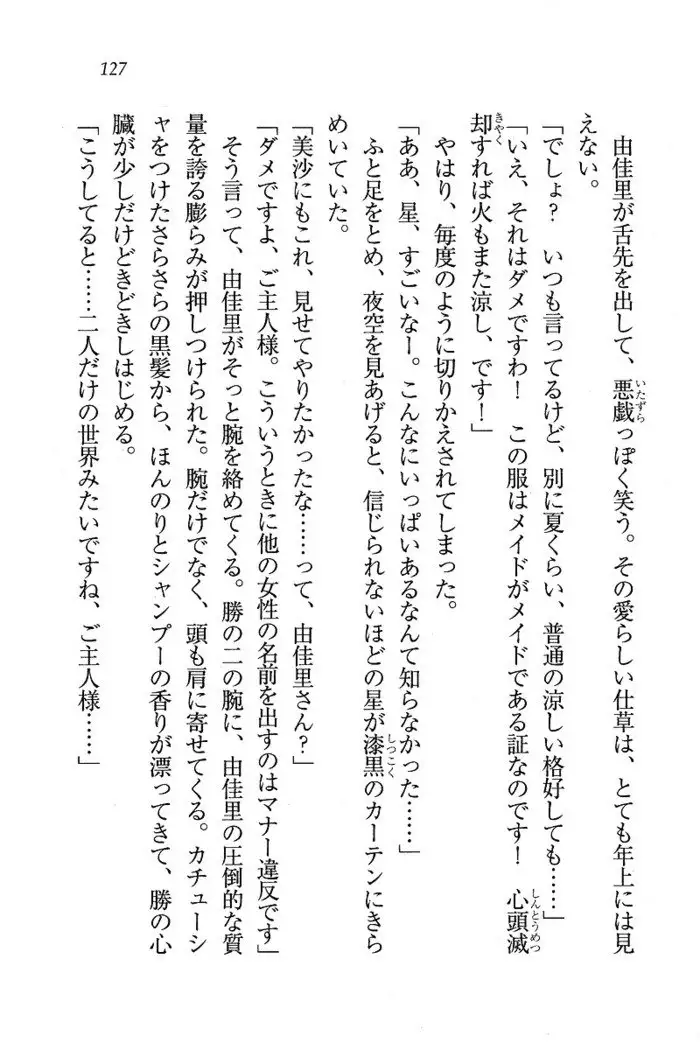 127
由佳里が舌先を出して、悪戯っぽく笑う。その愛らしい仕草は、とても年上には見
えない。
「でしょ？　いつも言ってるけど、別に夏くらい、普通の涼しい格好しても……」
「いえ、それはダメですわ！　この服はメイドがメイドである証なのです！　心頭滅
却すれば火もまた涼し、です！」
やはり、毎度のように切りかえされてしまった。
「ああ、星、すごいなー。こんなにいっぱいあるなんて知らなかった……」
ふと足をとめ、夜空を見あげると、信じられないほどの星が漆黒のカーテンにきら
めいていた。
「美沙にもこれ、見せてやりたかったな……って、由佳里さん？」
「ダメですよ、ご主人様。こういうときに他の女性の名前を出すのはマナー違反です」
そう言って、由佳里がそっと腕を絡めてくる。勝の二の腕に、由佳里の圧倒的な質
量を誇る膨らみが押しつけられた。腕だけでなく、頭も肩に寄せてくる。カチューシ
ャをつけたさらさらの黒髪から、ほんのりとシャンプーの香りが漂ってきて、勝の心
臓が少しだけどきどきしはじめる。
「こうしてると……二人だけの世界みたいですね、ご主人様……」